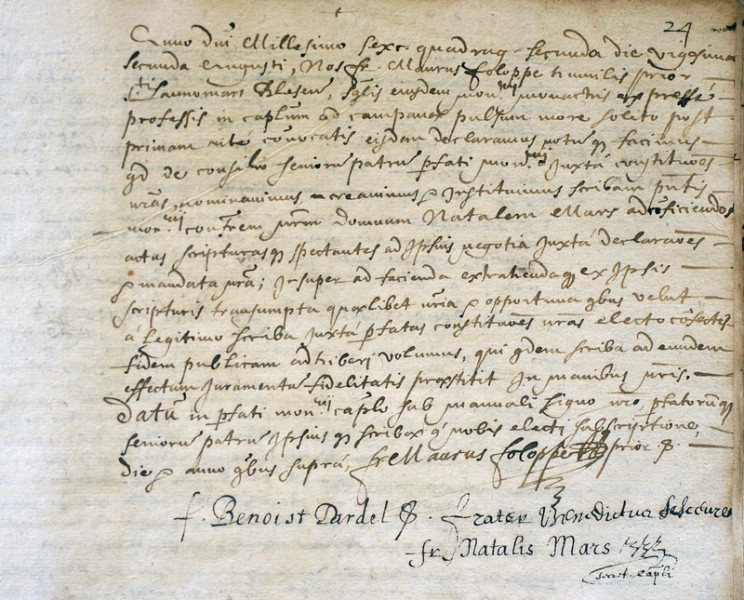 24
Anno dni Millesimo sexc. quadrag. secunda die vigesima
secunda Augusti, Nos fr. Maurus Foloppe humilis prior
sti Launomari Blesen, sglis eiusdem monrij monachis expresse
professis in caplum ad campanae pulsum more solito post
primam rite convocatis eisdem declaramus notum q facimus
qd de consilio seniorū patrū pfati monrij Juxta constitutōes
nras, nominavimus, creavimus & Instituimus scribam pntis
monrij confrem nrm domnum Natalem Mars ad conficiendos
actus scripturasq spectantes ad Ipsius negotia Juxta declaraōes
& mandata nra; Insuper ad facienda extrahendaq ex Ipsis
scripturis transumpta quaelibet nria & opportuna qbus velut
a legitimo scriba Juxta pfatas constitutōes nras electo
fidem publicam adhiberi volumus, qui qdem scriba ad eundem
effectum Juramentū fidelitatis praestitit In manibus nris.
Datū in pfati monrij caplo sub manuali signo nro pfatorūq
seniorū patrū Ipsius q scribae a nobis electi subscriptione,
die & anno qbus supra, fr Maurus Foloppe prior
f. Benoist Dardel Frater Benedictus
fr. Natalis Mars
secret. capli